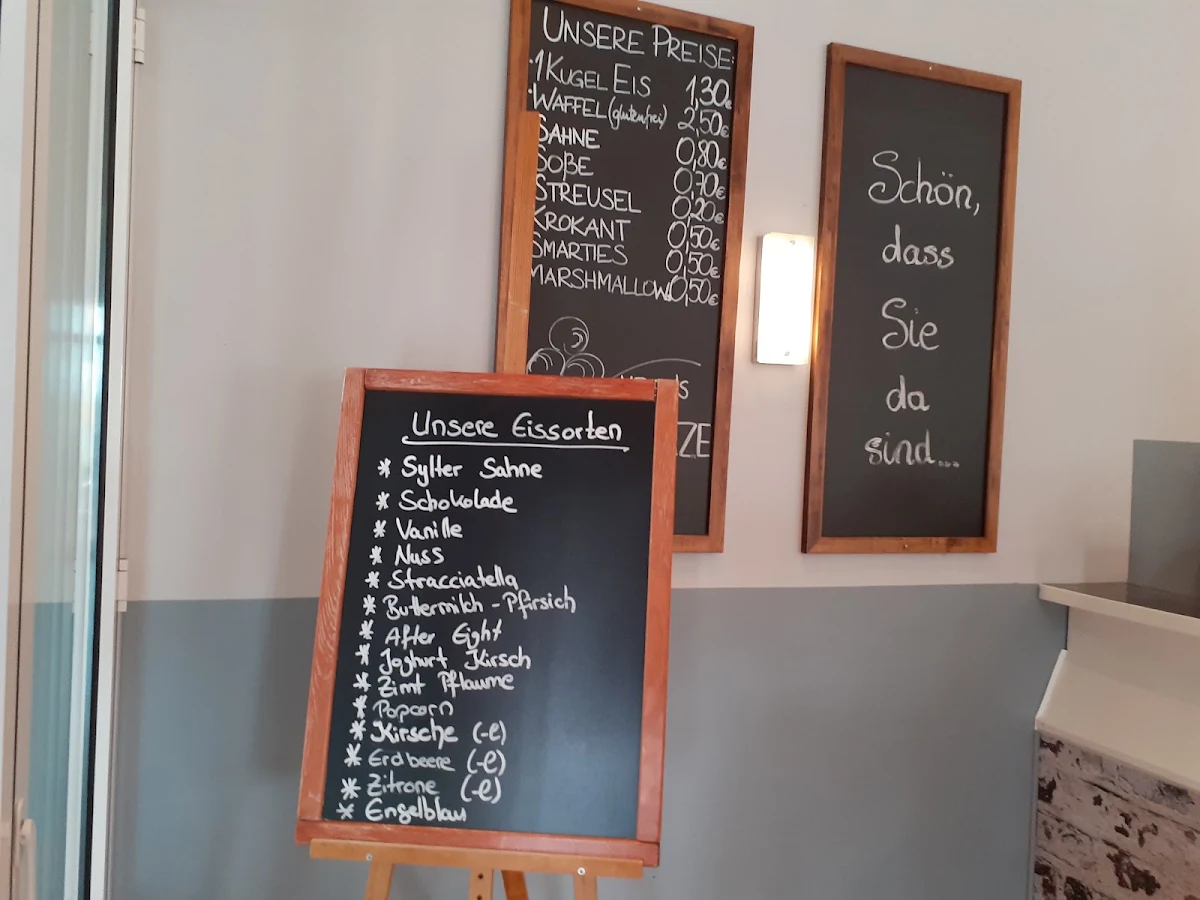 UNSERE PREISE:
·1 KUGEL EIS 1,30€
·WAFFEL (glutenfrei) 2,50€
SAHNE 0,80€
SOßE 0,70€
STREUSEL 0,20€
KROKANT 0,50€
SMARTIES 0,50€
MARSHMALLOWS 0,50€
Schön,
dass
Sie
da
sind....
Unsere Eissorten
* Sylter Sahne
* Schokolade
* Vanille
* Nuss
* Stracciatella
* Buttermilch - Pfirsich
* After Eight
* Joghurt Kirsch
* Zimt Pflaume
* Popcorn
* Kirsche (-l)
* Erdbeere (-l)
* Zitrone (-l)
* Engelblau